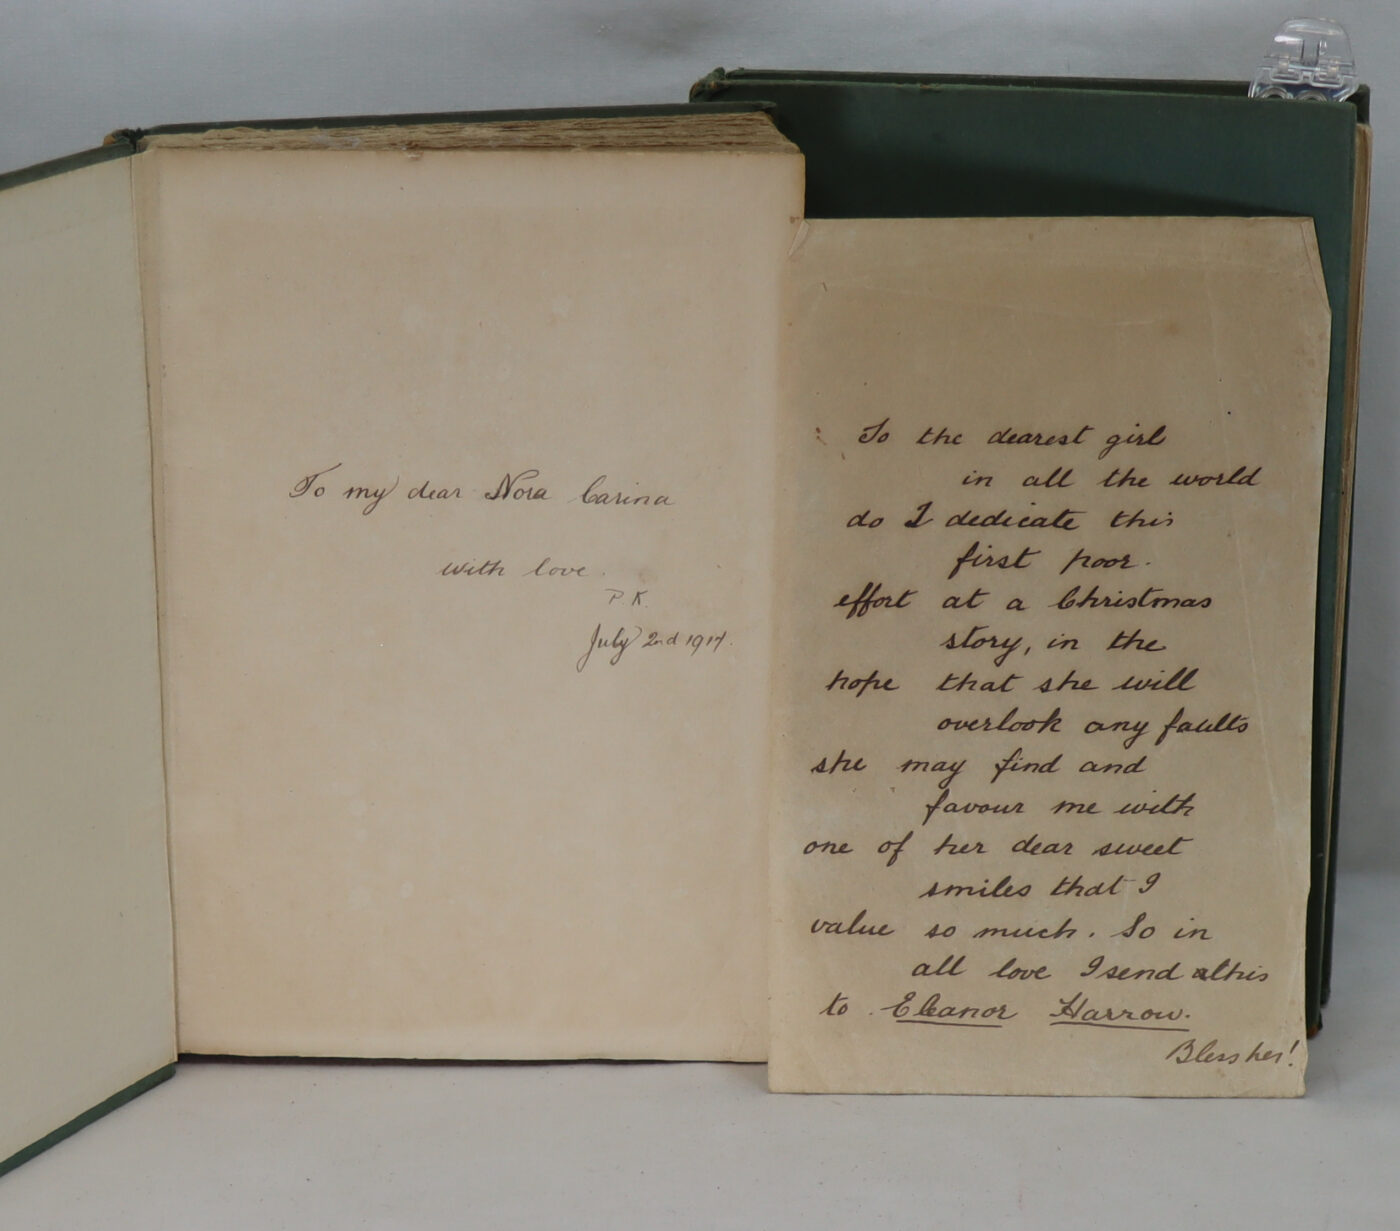 To my dear Nora Carina
with love.
P.K.
July 2nd 1914.
To the dearest girl
in all the world
do I dedicate this
first poor.
effort at a Christmas
story, in the
hope that she will
overlook any faults
she may find and
favour me with
one of her dear sweet
smiles that I
value so much. So in
all love I send this
to Eleanor Harrow.
Bless her!